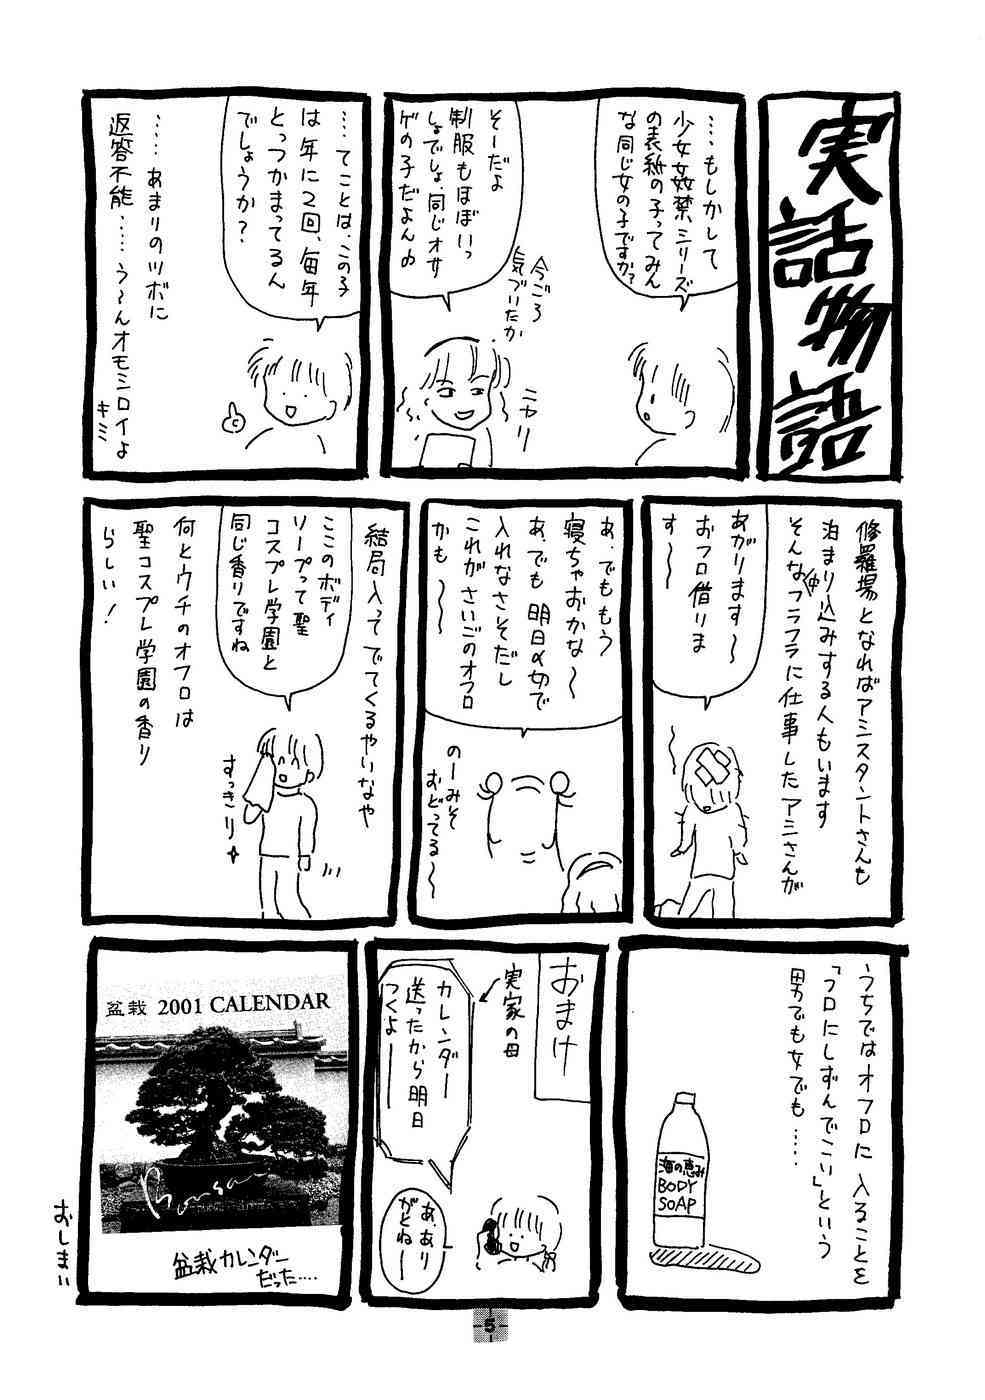 実話物語
‥‥もしかして
少女姦禁シリーズ
の表紙の子ってみん
な同じ女の子ですか?
そーだよ
制服もほぼいっ
しょでしょ、同じオサ
ゲの子だよん♪
今ごろ
気づいたか
ニヤリ
‥‥てことは、この子
は年に2回、毎年
とっつかまってるん
でしょうか?
‥‥あまりのツボに
返答不能‥‥う〜んオモシロイよ
キミ
修羅場となればアシスタントさんも
泊まり込みする人もいます
そんな中フラフラに仕事したアシさんが
あがります〜
おフロ借りま
す〜
あ、でももう
寝ちゃおかな〜
あ、でも明日〆切で
入れなさそだし
これがさいごのオフロ
かも〜
のーみそ
おどってる〜
結局入ってでてくるやいなや
ここのボディ
ソープって聖
コスプレ学園と
同じ香りですね
すっきり
何とウチのオフロは
聖コスプレ学園の香り
らしい!
うちではオフロに入ることを
「フロにしずんでこい」という
男でも女でも‥‥
海の恵み
BODY
SOAP
おまけ
実家の母
カレンダー
送ったから明日
つくよー
あ、あり
がとねー
盆栽 2001 CALENDAR
Bonsai
盆栽カレンダー
だった‥‥
おしまい
5